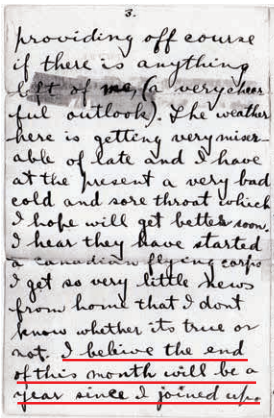 3.
providing off course
if there is anything
left of me, (a very cheer
ful outlook). The weather
here is getting very miser
able of late and I have
at the present a very bad
cold and sore throat which
I hope will get better soon.
I hear they have started
a canadian flying corps
I get so very little news
from home that I dont
know whether its true or
not. I belive the end
of this month will be a
year since I joined up.